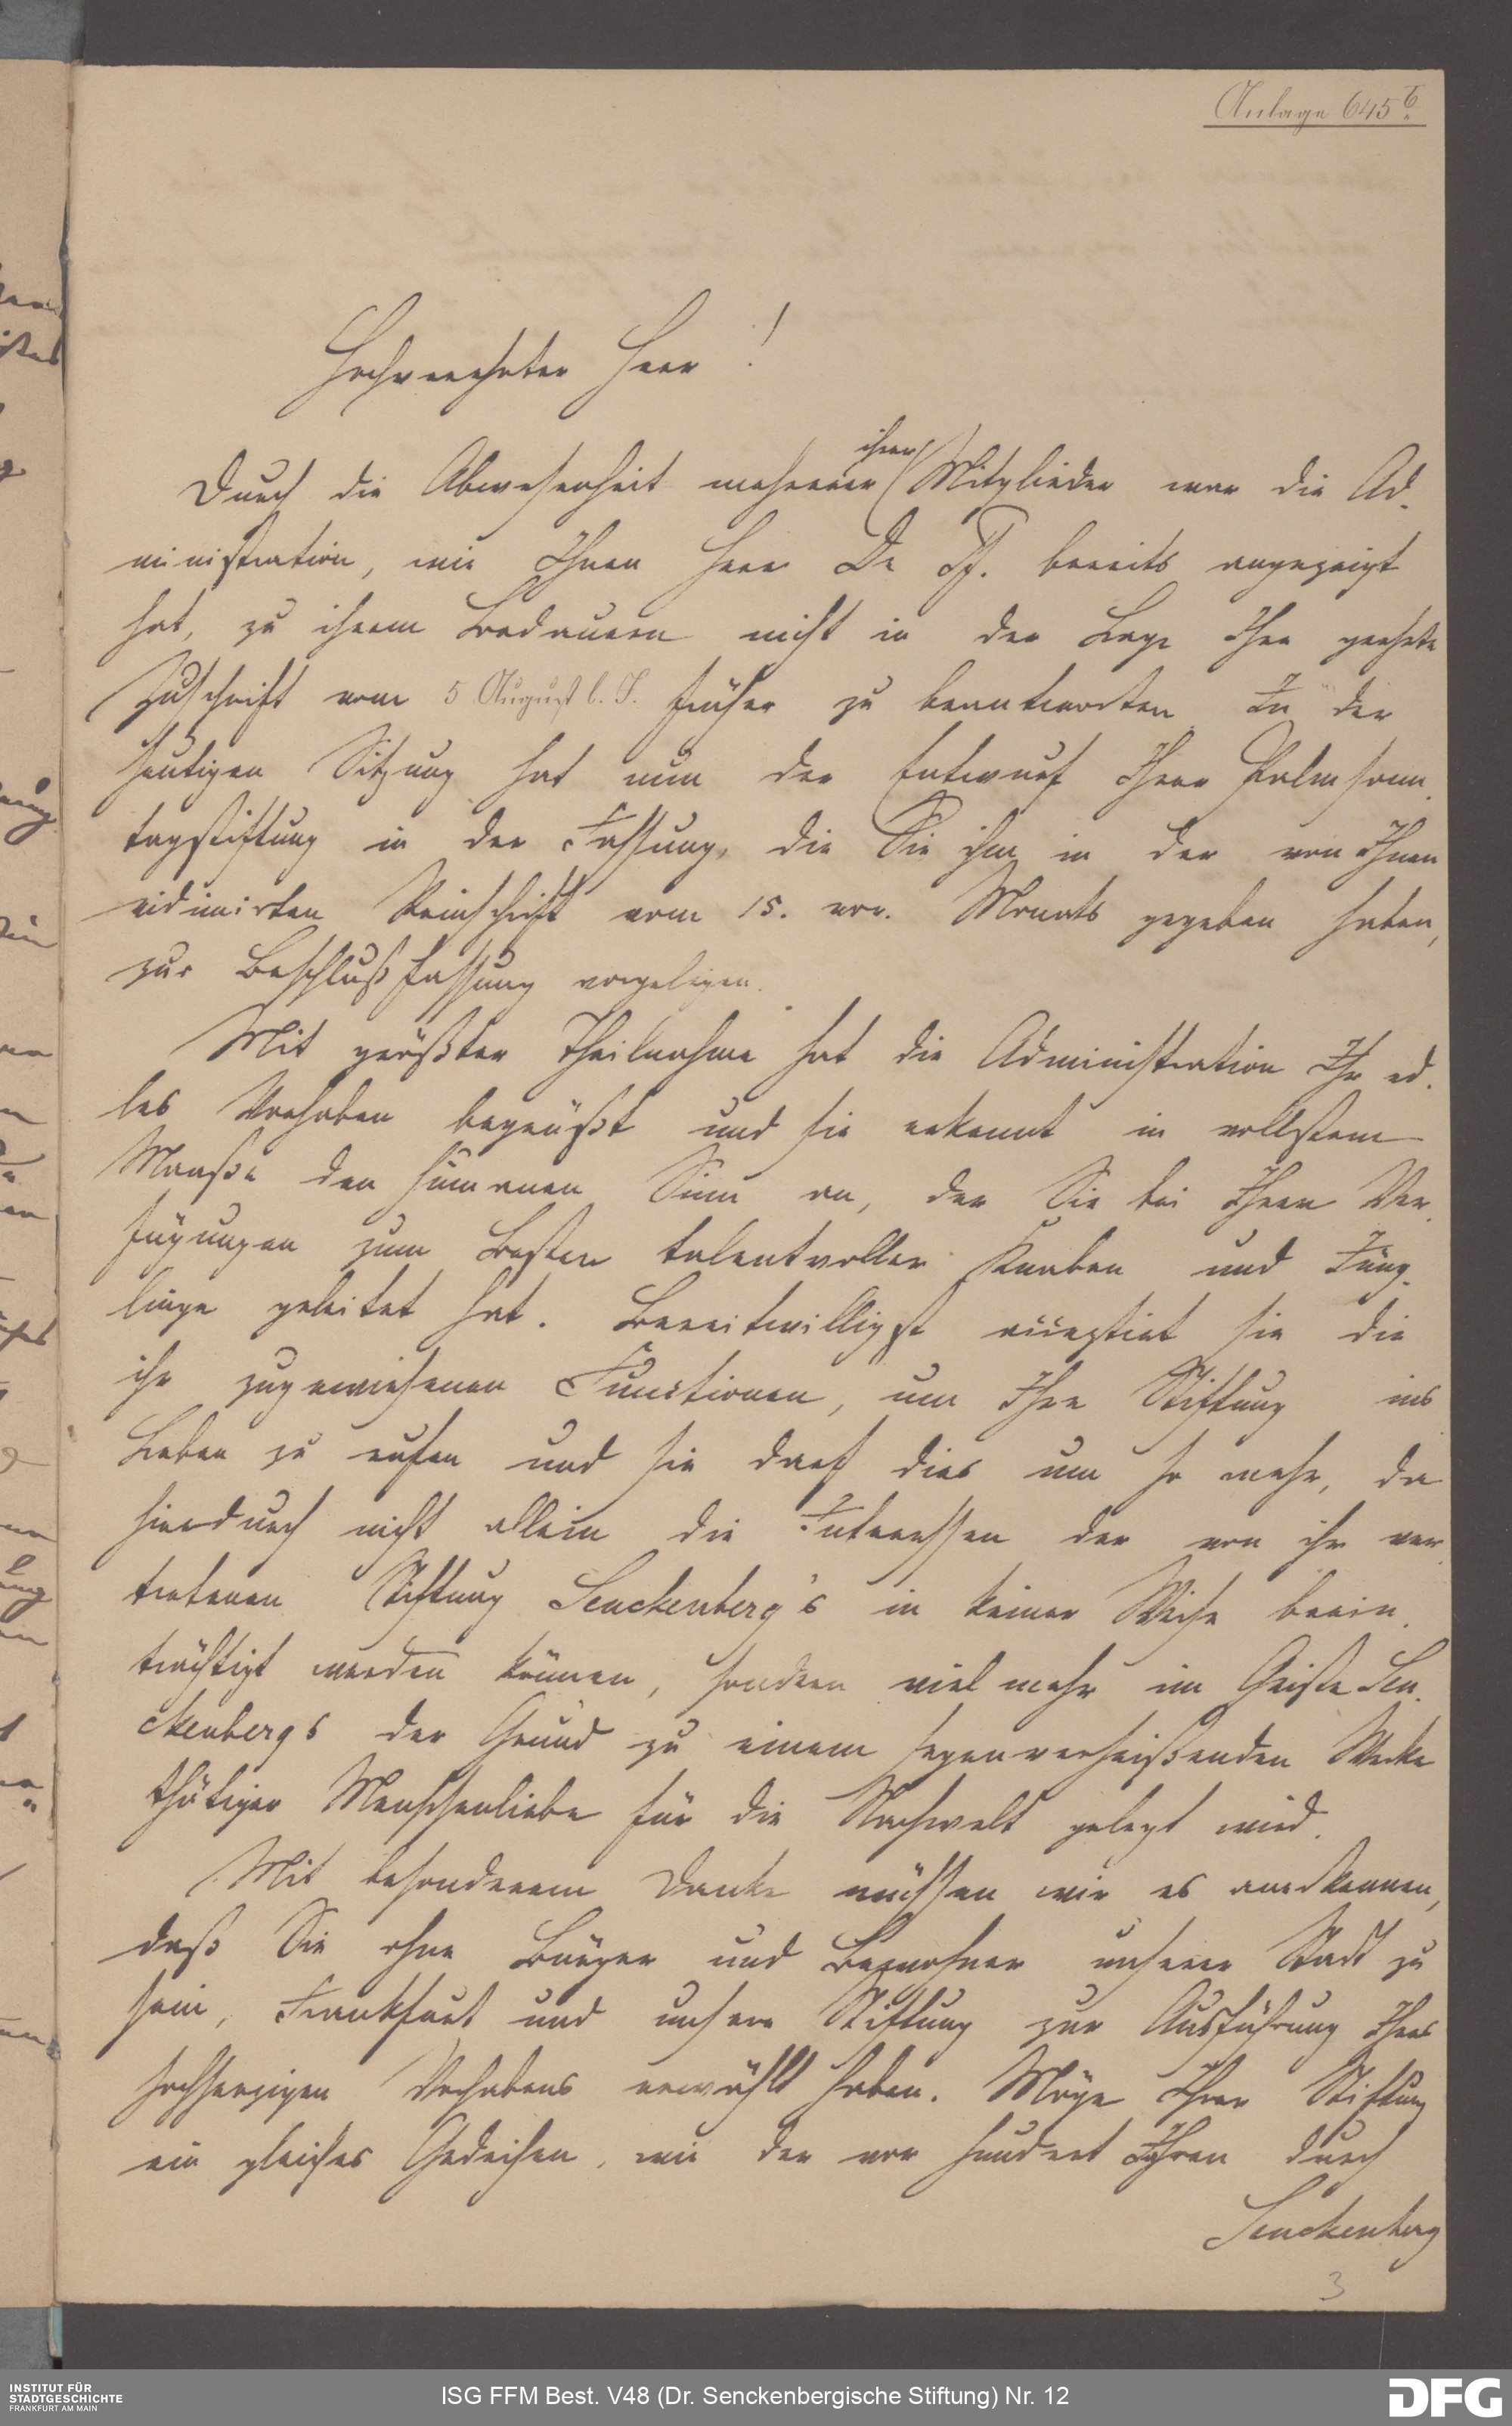 Anlage 645 b.
Hochverehrter Herr!
ihrer
Durch die Abwesenheit mehrerer Mitglieder war die Ad-
ministration, wie Ihnen Herr Dr Pf. bereits angezeigt
hat, zu ihrem Bedauern nicht in der Lage Ihre geehrte
Zuschrift vom 5 August l. J. früher zu beantworten. In der
heutigen Sitzung hat nun der Entwurf Ihrer Palmsonn-
tagstiftung in der Fassung, die Sie ihm in der von Ihnen
vidimirten Reinschrift vom 15. vor. Monats gegeben haben,
zur Beschlußfassung vorgelegen.
Mit größter Theilnahme hat die Administration Ihr ed-
les Vorhaben begrüßt und sie erkennt in vollstem
Maaße den humanen Sinn an, der Sie bei Ihren Ver-
fügungen zum Besten talentvoller Knaben und Jüng-
linge geleitet hat. Bereitwilligst acceptirt sie die
ihr zugewiesenen Functionen, um Ihre Stiftung ins
Leben zu rufen und sie darf dies um so mehr, da
hierdurch nicht allein die Interessen der von ihr ver-
tretenen Stiftung Senckenberg's in keiner Weise beein-
trächtigt werden können, sondern vielmehr im Geiste Sen-
ckenbergs der Grund zu einem segenverheißenden Werke
thätiger Menschenliebe für die Nachwelt gelegt wird.
Mit besonderem Danke müssen wir es anerkennen,
daß Sie ohne Bürger und Bewohner unserer Stadt zu
sein, Frankfurt und unsere Stiftung zur Ausführung Ihres
hochherzigen Vorhabens erwählt haben. Möge Ihrer Stiftung
ein gleiches Gedeihen, wie der vor hundert Jahren durch
Senckenberg
3
INSTITUT FÜR
STADTGESCHICHTE
FRANKFURT AM MAIN
ISG FFM Best. V48 (Dr. Senckenbergische Stiftung) Nr. 12
DFG